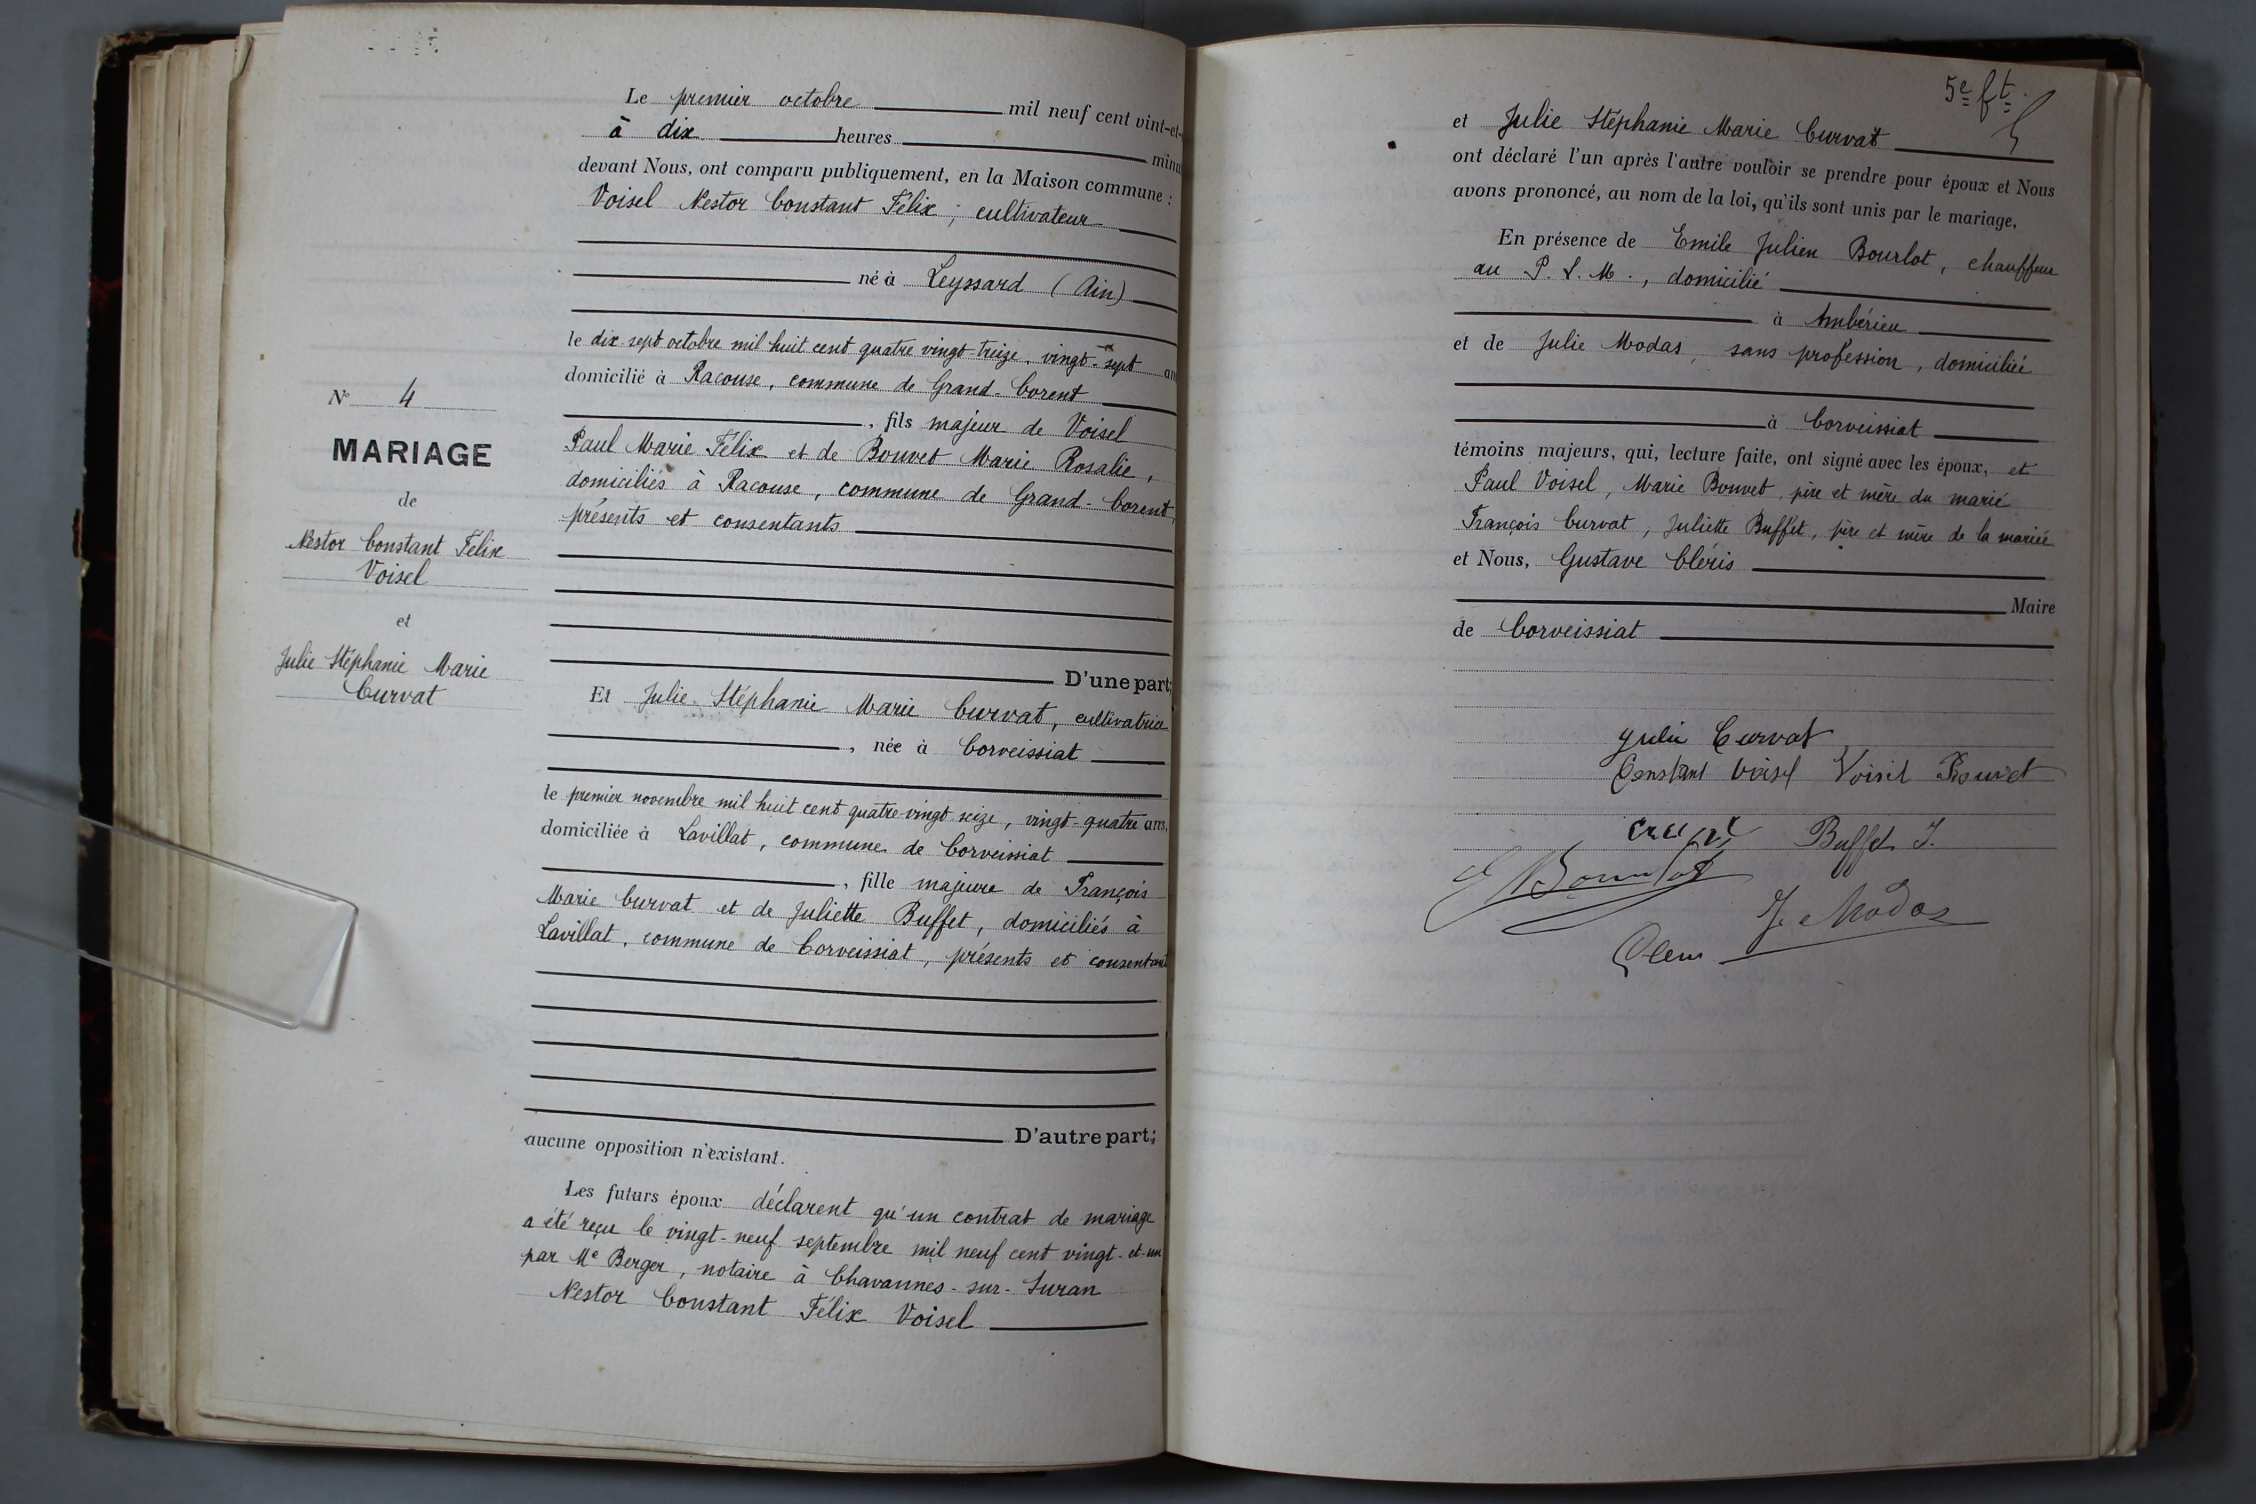 Le premier octobre mil neuf cent vint-et-
à dix heures minu
devant Nous, ont comparu publiquement, en la Maison commune :
Voisel Nestor Constant Félix ; cultivateur
né à Leyssard (Ain)
le dix-sept octobre mil huit cent quatre vingt-treize, vingt-sept an
domicilié à Racouse, commune de Grand-Corent
, fils majeur de Voisel
Paul Marie Félix et de Bouvet Marie Rosalie,
domiciliés à Racouse, commune de Grand-Corent,
présents et consentants
D'une part;
N° 4
MARIAGE
de
Nestor Constant Félix
Voisel
et
Julie Stéphanie Marie
Curvat
Et Julie Stéphanie Marie Curvat, cultivatrice
, née à Corveissiat
le premier novembre mil huit cent quatre-vingt seize, vingt-quatre ans,
domiciliée à Lavillat, commune de Corveissiat
, fille majeure de François
Marie Curvat et de Juliette Buffet, domiciliés à
Lavillat, commune de Corveissiat, présents et consentant
D'autre part;
aucune opposition n'existant.
Les futurs époux déclarent qu'un contrat de mariage
a été reçu le vingt-neuf septembre mil neuf cent vingt-et-un
par Me Berger, notaire à Chavannes-sur-Suran
Nestor Constant Félix Voisel
5e ft
et Julie Stéphanie Marie Curvat
ont déclaré l'un après l'autre vouloir se prendre pour époux et Nous
avons prononcé, au nom de la loi, qu'ils sont unis par le mariage,
En présence de Emile Julien Bourlot, chauffeur
au P. L. M., domicilié
à Ambérieu
et de Julie Modas, sans profession, domiciliée
à Corveissiat
témoins majeurs, qui, lecture faite, ont signé avec les époux, et
Paul Voisel, Marie Bouvet, père et mère du marié
François Curvat, Juliette Buffet, père et mère de la mariée
et Nous, Gustave Cléris
Maire
de Corveissiat
Julie Curvat
Constant Voisel Voisel Bouvet
Buffet J.
E Bourlot
J. Modas